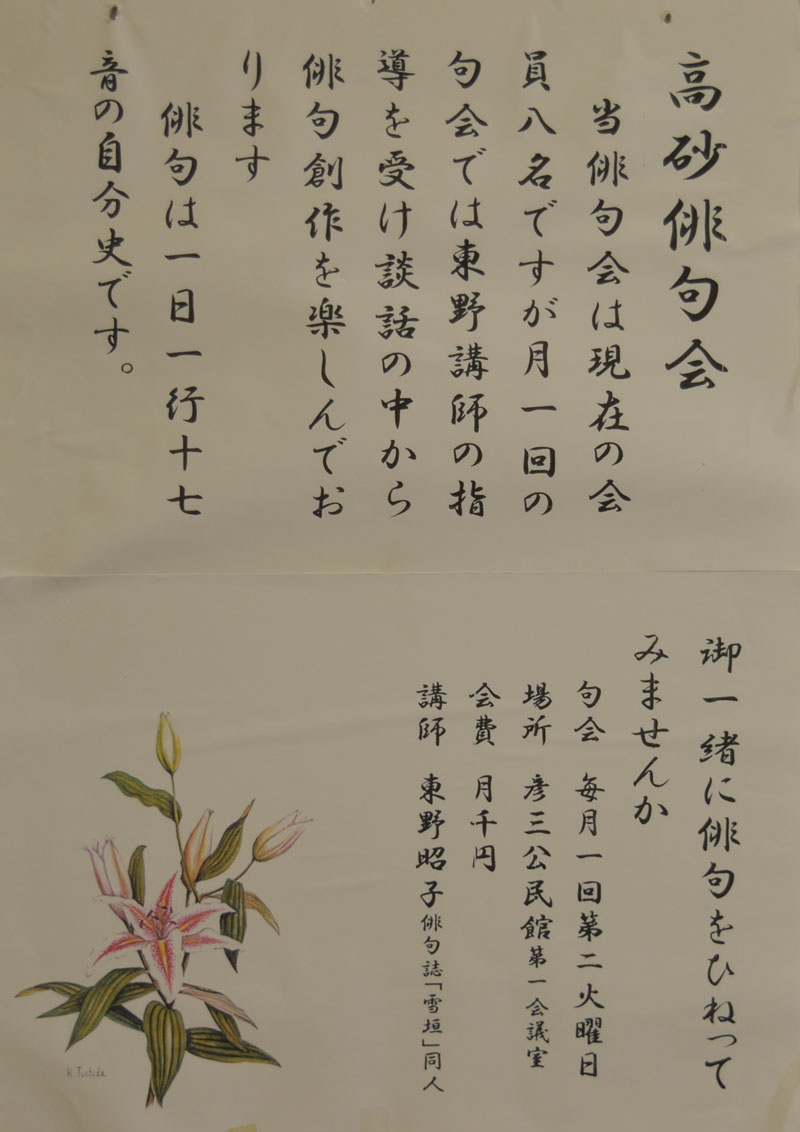 高砂俳句会
当俳句会は現在の会
員八名ですが月一回の
句会では東野講師の指
導を受け談話の中から
俳句創作を楽しんでお
ります
俳句は一日一行十七
音の自分史です。
御一緒に俳句をひねって
みませんか
句会 毎月一回第二火曜日
場所 彦三公民館第一会議室
会費 月千円
講師 東野昭子俳句誌「雪垣」同人
K.Tsuchida